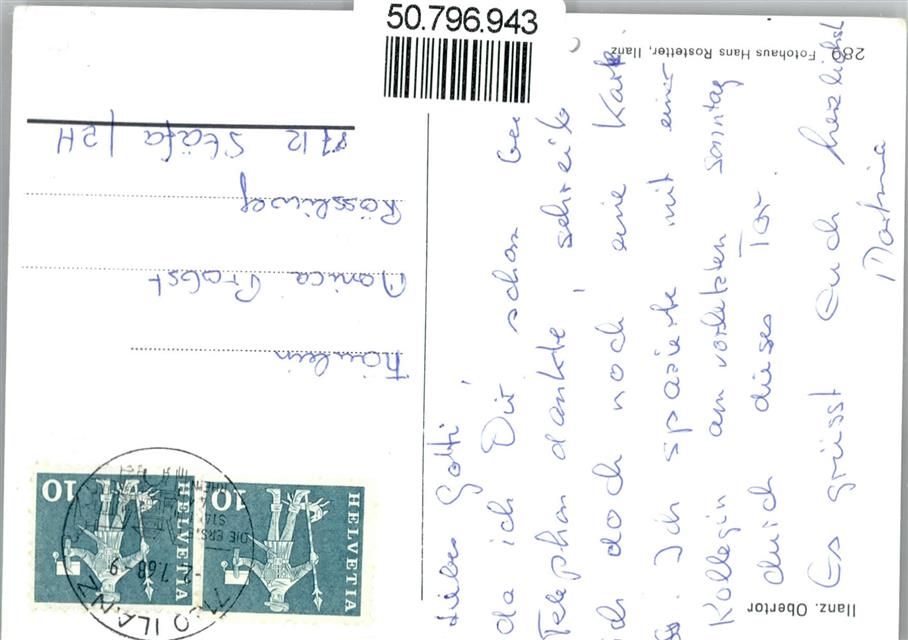 50.796.943
289 Fotohaus Hans Rostetter, Ilanz
Ilanz. Obertor
Liebes Gotti,
da ich Dir schon bei
Telephon dankte, schreib
ich doch noch eine Karte
Ich spazierte mit einer
Kollegin am vorletzten Sonntag
durch dieses Tor.
Es grüsst Euch herzlichst
Martina
HELVETIA
10
HELVETIA
10
ILANZ
-2.7.68-9
DIE ERSTE
STADT AM
RHEIN
Fräulein
Monica Probst
Rössliweg
8712 Stäfa / ZH